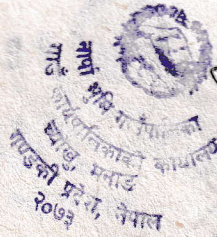 नार्पा भूमि गाउँपालिका
गाउँ कार्यपालिकाको कार्यालय
च्याखु, मनाङ
गण्डकी प्रदेश, नेपाल
२०७३